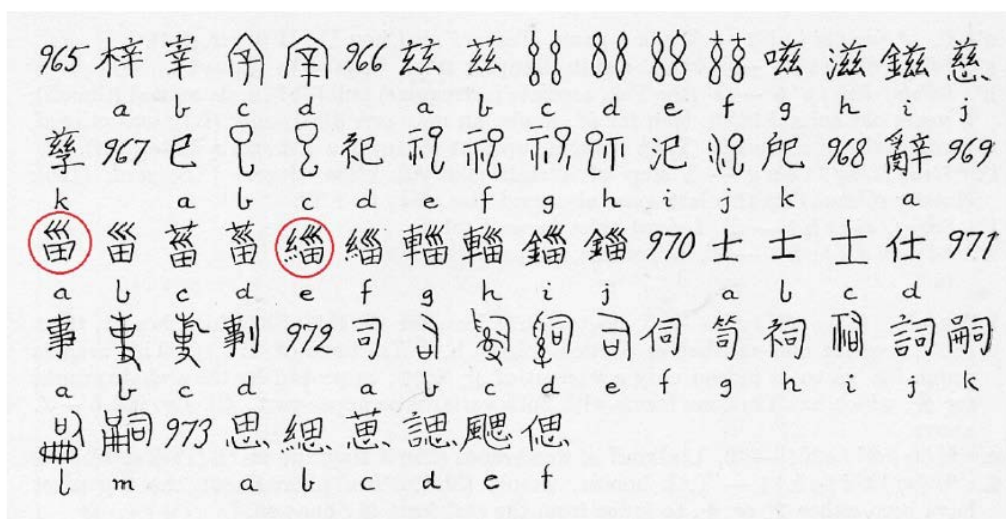 965 梓 宰 966 玆 茲 嗞 滋 鎡 慈
a b c d a b c d e f g h i j
孳 967 巳 祀 汜 戺 968 辭 969
k a b d e f g h i j k a
甾 甾 菑 菑 緇 緇 輜 輜 錙 錙 970 士 士 士 仕 971
a b c d e f g h i j a b c d
事 剚 972 司 伺 笥 祠 詞 嗣
a b c d a b d e f g h i j k
973 思 緦 葸 諰 颸 偲
l m a b c d e f